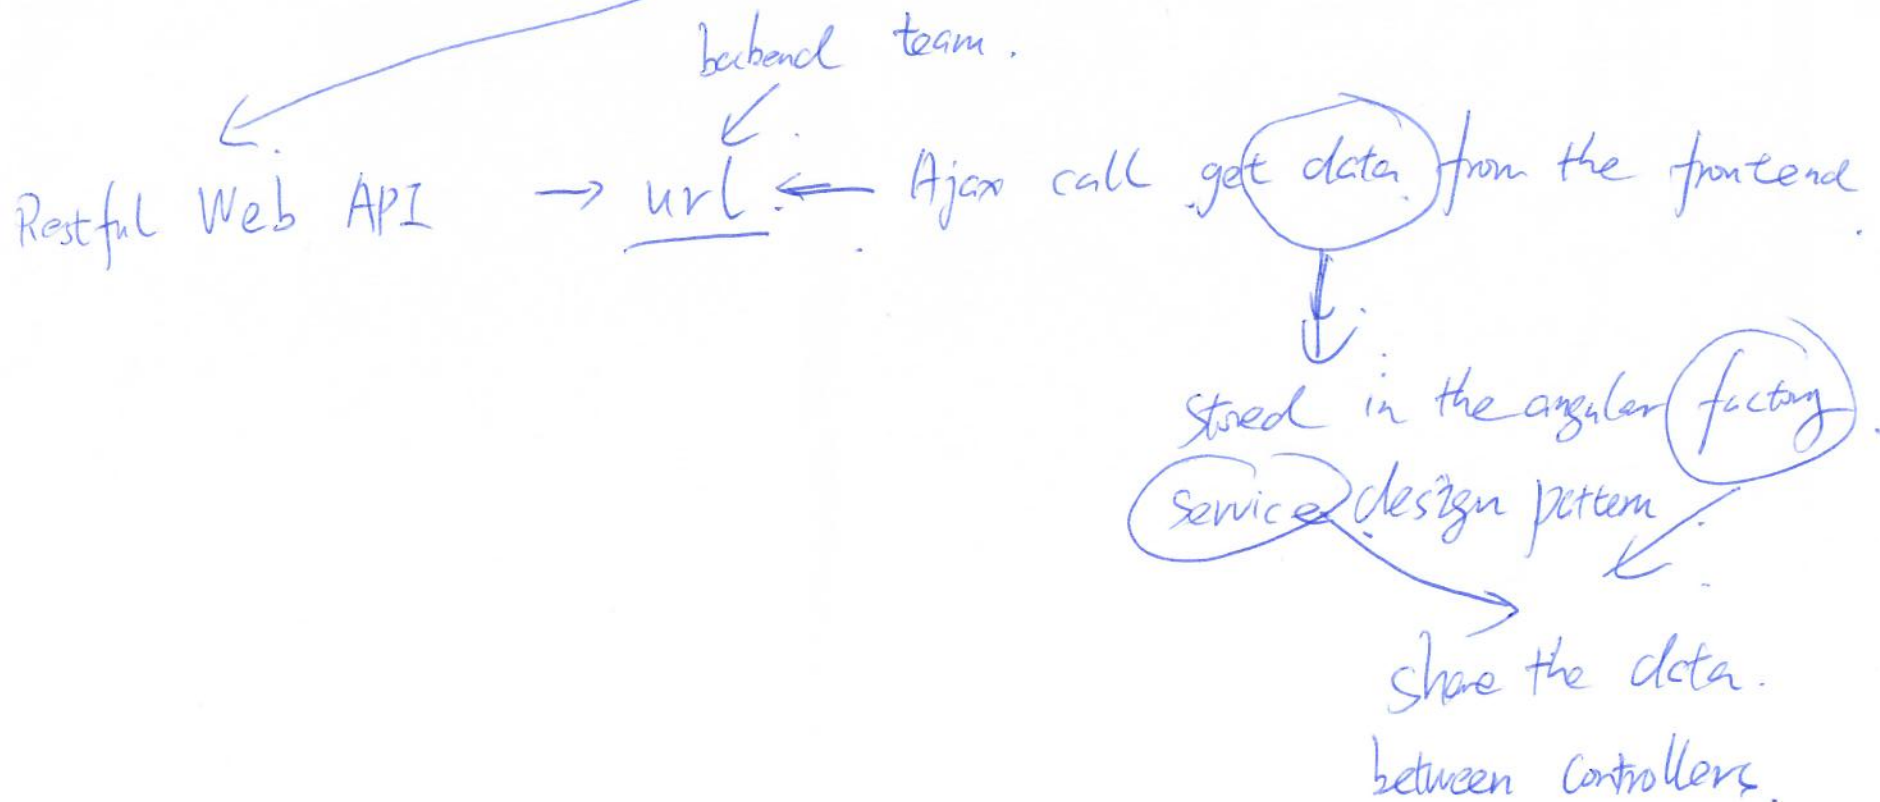 backend team.
Restful Web API → url ← Ajax call get data from the frontend
stored in the angular factory
service design pattern
share the data.
between controllers.